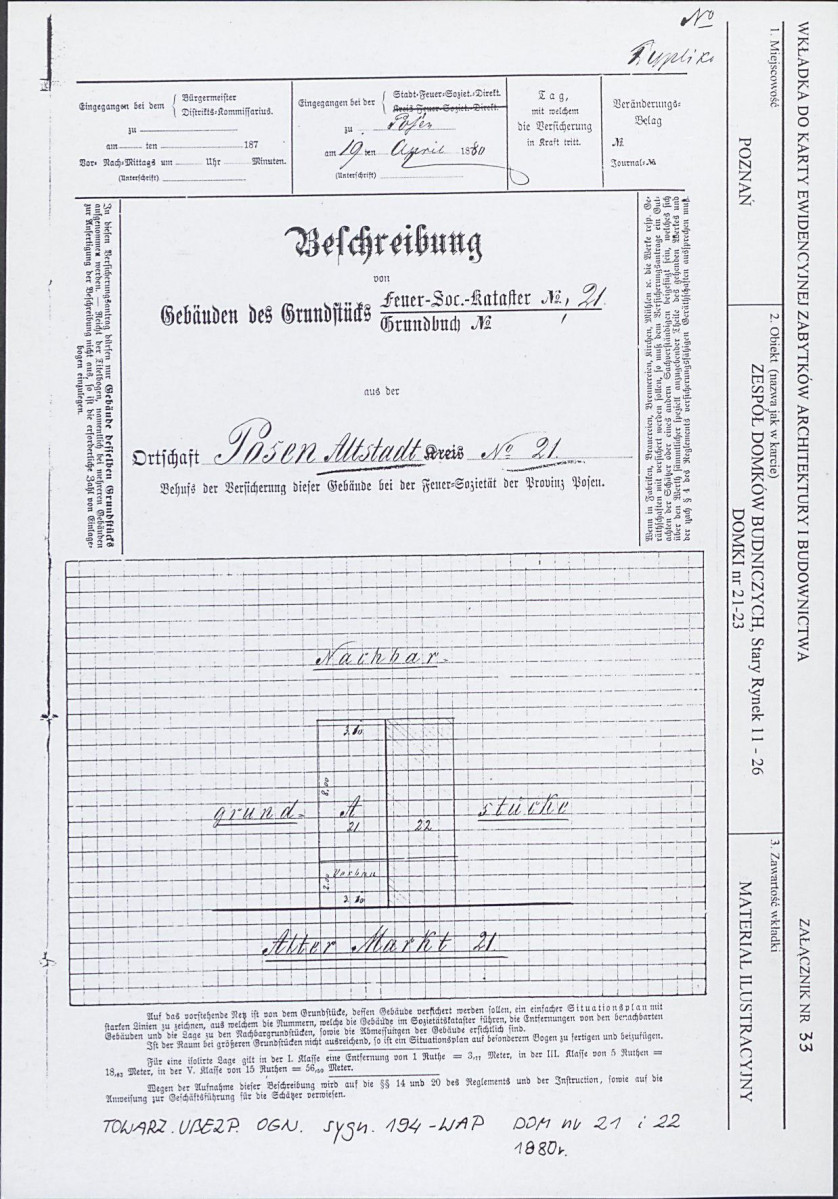 No
Duplikat
Eingegangen bei dem { Bürgermeister
Distrikts-Kommissarius.
zu
am ten 187
Vor- Nach-Mittags um Uhr Minuten.
(Unterschrift)
Eingegangen bei der { Stadt-Feuer-Soziet.-Direkt.
Kreis-Feuer-Soziet.-Direkt.
zu Posen
am 19 ten April 1880
(Unterschrift)
Tag,
mit welchem
die Versicherung
in Kraft tritt.
Veränderungs-
Belag
№
Journal-№
In diesen Versicherungsantrag dürfen nur Gebäude desselben Grundstücks
aufgenommen werden. — Reicht der Titelbogen, namentlich bei mehreren Gebäuden
zur Anfertigung der Beschreibung nicht aus, so ist die erforderliche Zahl von Einlage-
bogen einzulegen.
Beschreibung
von
Gebäuden des Grundstücks Feuer-Soc.-Kataster №, 21.
Grundbuch №
aus der
Ortschaft Posen Altstadt Kreis No 21.
Behufs der Versicherung dieser Gebäude bei der Feuer-Sozietät der Provinz Posen.
Nachbar-
3.80
8.00
A
21
22
grund-
stücke
Vorbau
2.00
3.80
Alter Markt 21.
Auf das vorstehende Netz ist von dem Grundstücke, dessen Gebäude versichert werden sollen, ein einfacher Situationsplan mit
starken Linien zu zeichnen, aus welchem die Nummern, welche die Gebäude im Sozietätskataster führen, die Entfernungen von den benachbarten
Gebäuden und die Lage zu den Nachbargrundstücken, sowie die Abmessungen der Gebäude ersichtlich sind.
Ist der Raum bei größeren Grundstücken nicht ausreichend, so ist ein Situationsplan auf besonderem Bogen zu fertigen und beizufügen.
Für eine isolirte Lage gilt in der I. Klasse eine Entfernung von 1 Ruthe = 3,77 Meter, in der III. Klasse von 5 Ruthen =
18,83 Meter, in der V. Klasse von 15 Ruthen = 56,50 Meter.
Wegen der Aufnahme dieser Beschreibung wird auf die §§ 14 und 20 des Reglements und der Instruction, sowie auf die
Anweisung zur Geschäftsführung für die Schätzer verwiesen.
TOWARZ. UBEZP. OGN. sygn. 194-WAP DOM nr 21 i 22
1880r.
WKŁADKA DO KARTY EWIDENCYJNEJ ZABYTKÓW ARCHITEKTURY I BUDOWNICTWA
ZAŁĄCZNIK NR 33
1. Miejscowość
POZNAŃ
2. Obiekt (nazwa jak w karcie)
ZESPÓŁ DOMKÓW BUDNICZYCH, Stary Rynek 11 - 26
DOMKI nr 21-23
3. Zawartość wkładki
MATERIAŁ ILUSTRACYJNY